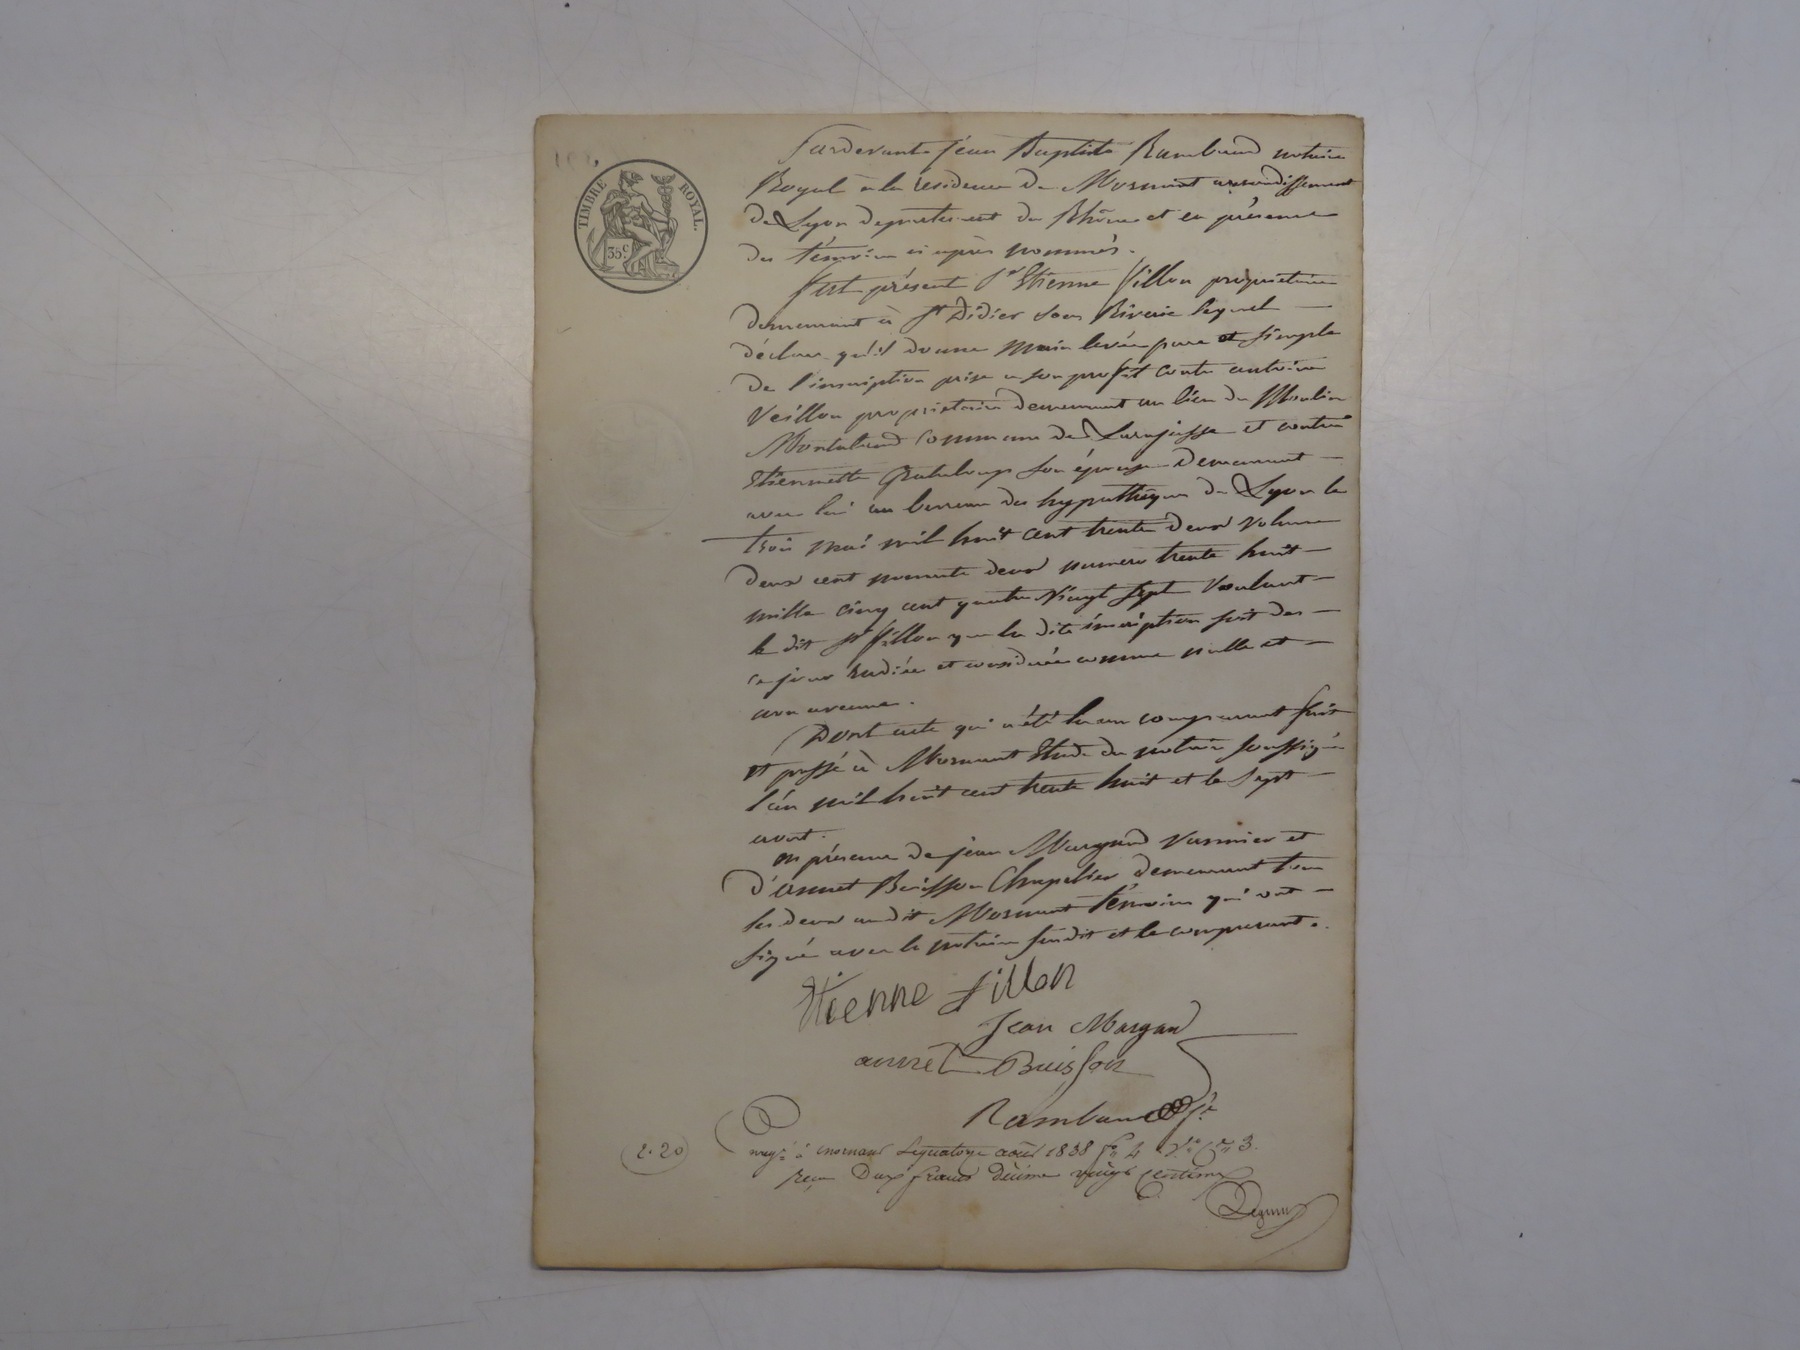 TIMBRE ROYAL.
35 c.
Pardevant Jean Baptiste Rambaud notaire
Royal à la résidence de Mornant arrondissement
de Lyon departement du Rhône et en présence
des témoins ci après nommés.
fut présent Sr Etienne fillon propriétaire
demeurant à St Didier sous Riverie lequel
déclare qu'il donne main levée pure et simple
de l'inscription prise a son profit contre antoine
Veillon propriétaire demeurant au lieu du Moulin
commune de Larajasse et contre
Etiennette Grataloup son épouse demeurant
avec lui au bureau des hypothèques de Lyon le
trois mai mil huit cent trente deux volume
deux cent deux numero trente huit
mille cinq cent quatre vingt sept Voulant
le dit Sr fillon que la dite inscription soit des
ce jour radiée et considérée comme nulle et
non avenue.
Dont acte qui a été lu au comparant fait
et passé à Mornant Etude du notaire soussigné
l'an mil huit cent trente huit et le sept
aout.
en présence de jean Margand et
d'annet Buisson Chapelier demeurant tous
les deux audit Mornant témoins qui ont
signé avec le notaire susdit et le comparant.
Etienne fillon
Jean Margand
annet Buisson
Rambaud
2.20
Enregé à mornant Le quatorze août 1838 fo 4 Vo Ce 3.
reçu Deux francs décime vingt centimes